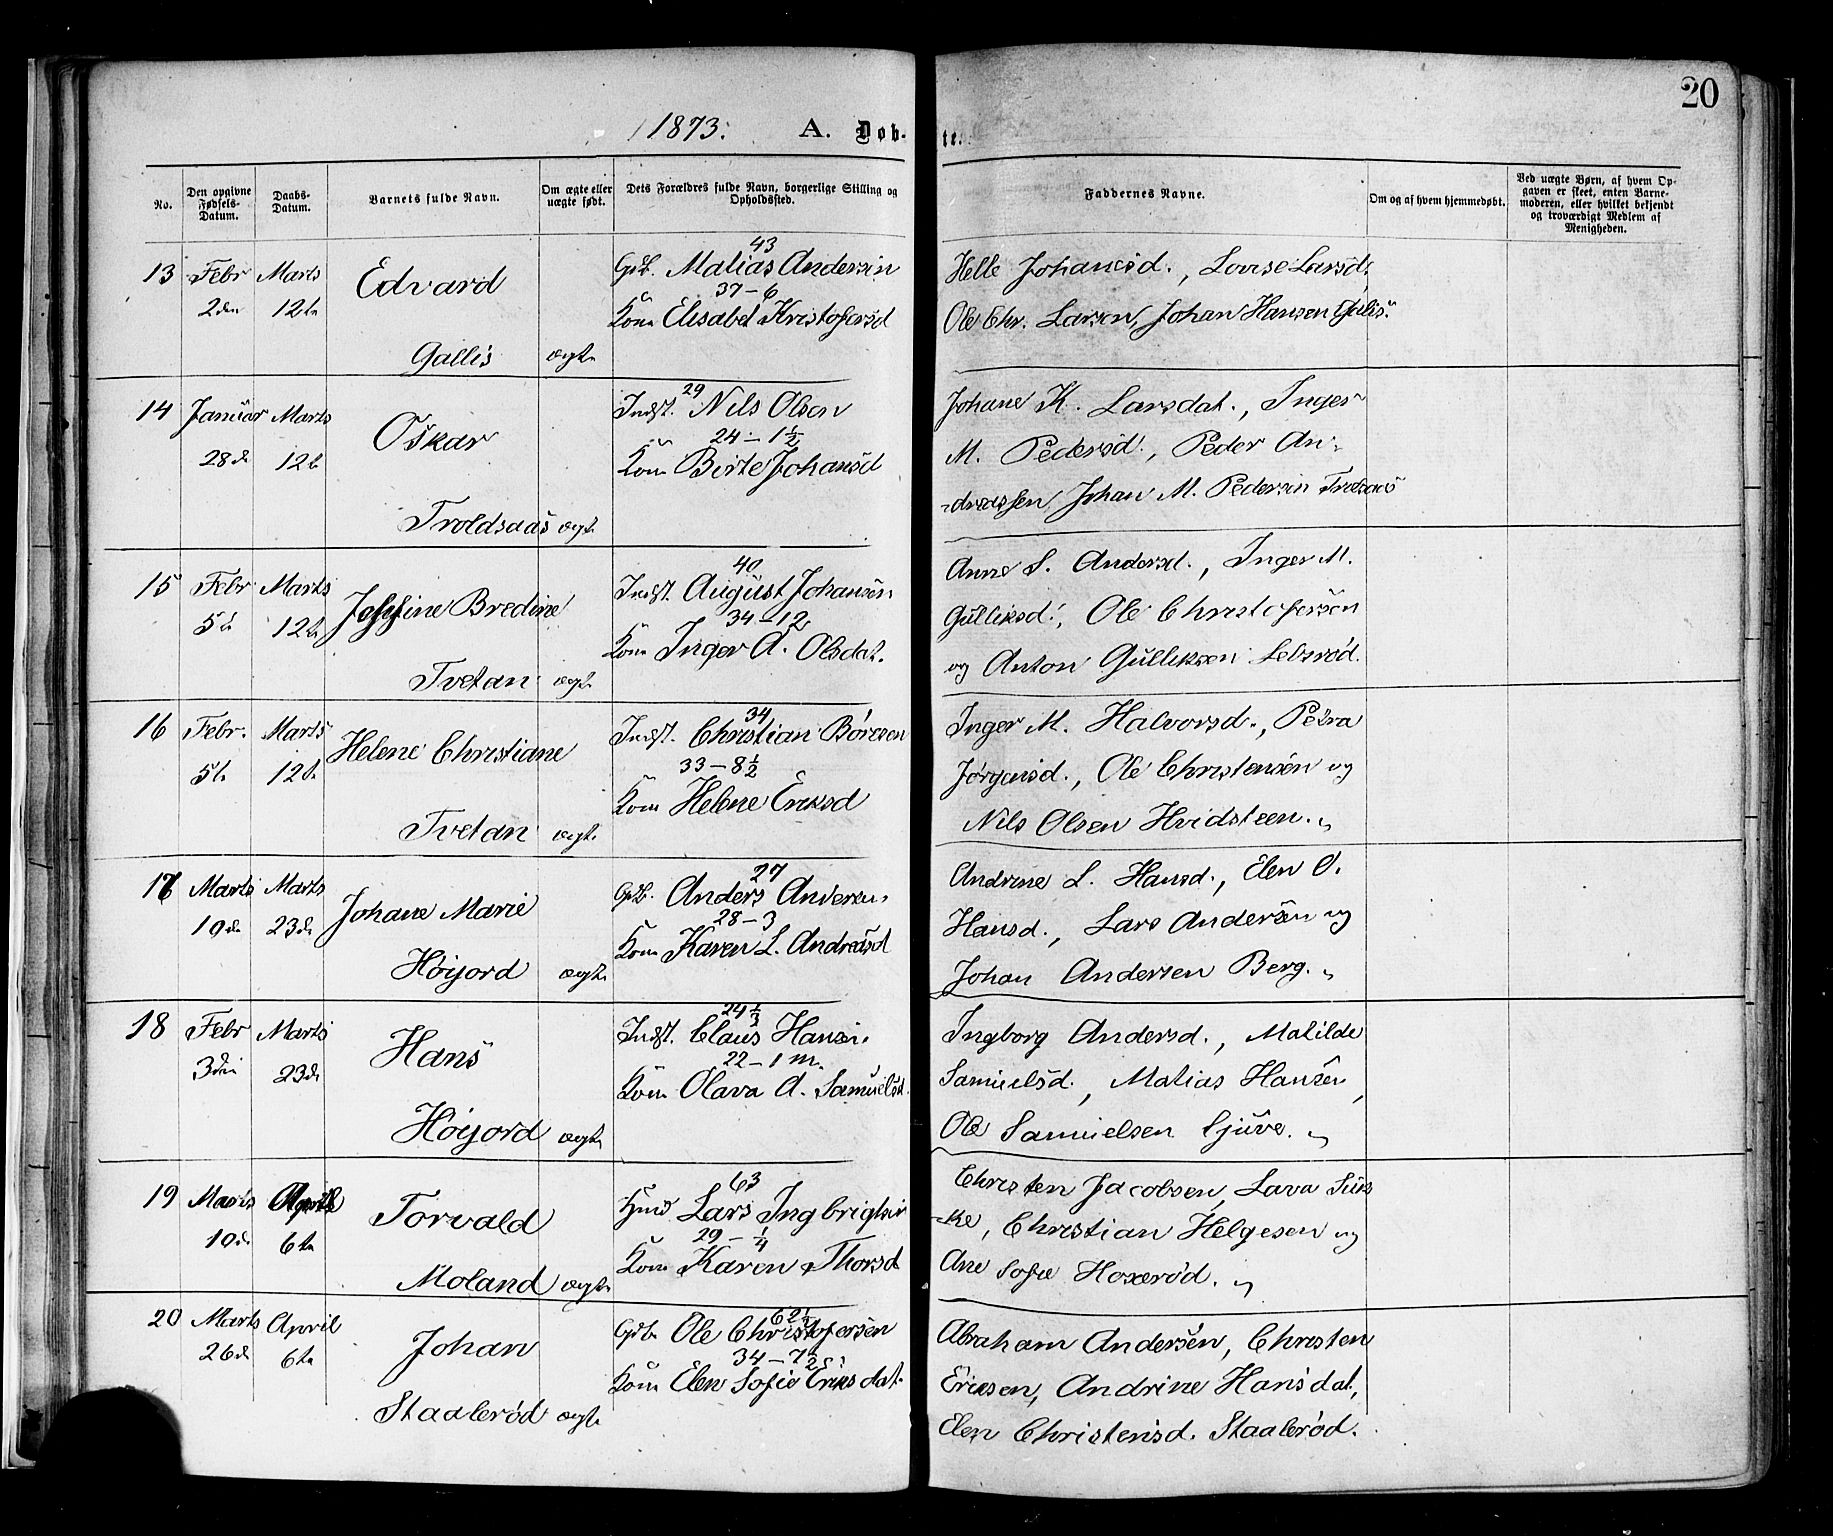 20
1873. A. Døb-
te.
No.
Den opgivne Fødsels-Datum.
Daabs-Datum.
Barnets fulde Navn.
Om ægte eller uægte født.
Dets Forældres fulde Navn, borgerlige Stilling og Opholdssted.
Faddernes Navne.
Om og af hvem hjemmedøbt.
Ved uægte Børn, af hvem Op-
gaven er skeet, enten Barne-
moderen, eller hvilket bekjendt
og troværdigt Medlem af
Menigheden.
43
13 Febr Marts Edvard Gdb. Matias Andersen
37-6
2den 12te Kone Elisabet Kristofersd
Gallis ægte
Helle Johanesd., Lovise Larsd,
Ole Chr. Larsen, Johan Hansen
29
14 Januar Marts Oskar Indst. Nils Olsen
24-1½
28de 12te Kone Birte Johansd
Troldsaas ægte
Johane K. Larsdat., Inger
M. Pedersd., Peder An-
-dreassen, Johan M. Pedersen
40
15 Febr Marts Josefine Bredine Indst. August Johansen
34-12
5te 12te Kone Inger A. Olsdat.
Tvetan ægte
Anne S. Andersd., Inger M.
Gulliksd., Ole Christofersen
og Anton Gulliksen
34
16 Febr. Marts Helene Christiane Indst. Christian Børesen
33-8½
5te 12te Kone Helene Eriksd
Tvetan ægte
Inger M. Halvorsd., Petra
Jørgensd., Ole Christensen og
Nils Olsen Hvidsteen.
27
17 Marts Marts Johane Marie Gdb. Anders Andersen.
28-3
10de 23de Kone Karen L. Andreasd
Høijord ægte
Andrine L. Hansd., Elen O.
Hansd., Lars Andersen og
Johan Andersen Berg.
24⅓
18 Febr Marts Hans Indst. Claus Hansen.
22-1 m.
3die 23de Kone Olava A. Samuelsd.
Høijord ægte
Ingborg Andersd., Matilde
Samuelsd., Matias Hansen,
Ole Samuelsen Gjuve.
63
19 Marts April Torvald Lars Ingbrigtsen
29-¼
10de 6te Kone Karen Thorsd
Moland ægte
Christen Jacobsen, Lava
Christian Helgesen og
Ane Sofie Hoxerød.
62½
20 Marts April Johan Gdb. Ole Christofersen
34-7½
26de 6te Kone Elen Sofie Eriksdat.
Staalerød ægte
Abraham Andersen, Christen
Ericsen, Andrine Hansdat,
Elen Christensd. Staalerød.